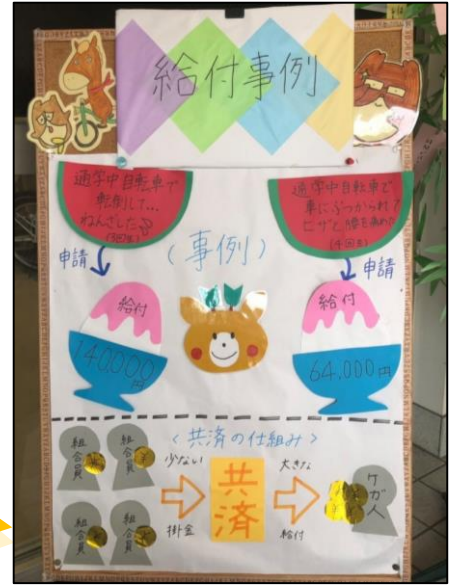 給付事例
通学中自転車で
転倒して…
ねんざした
通学中自転車で
車にぶつかられ
ヒザと腰を痛めた
(4回生)
(事例)
申請
申請
給付
給付
140,000円
64,000円
<共済の仕組み>
組合員
組合員
組合員
組合員
少ない
掛金
共済
大きな
給付
ケガ人